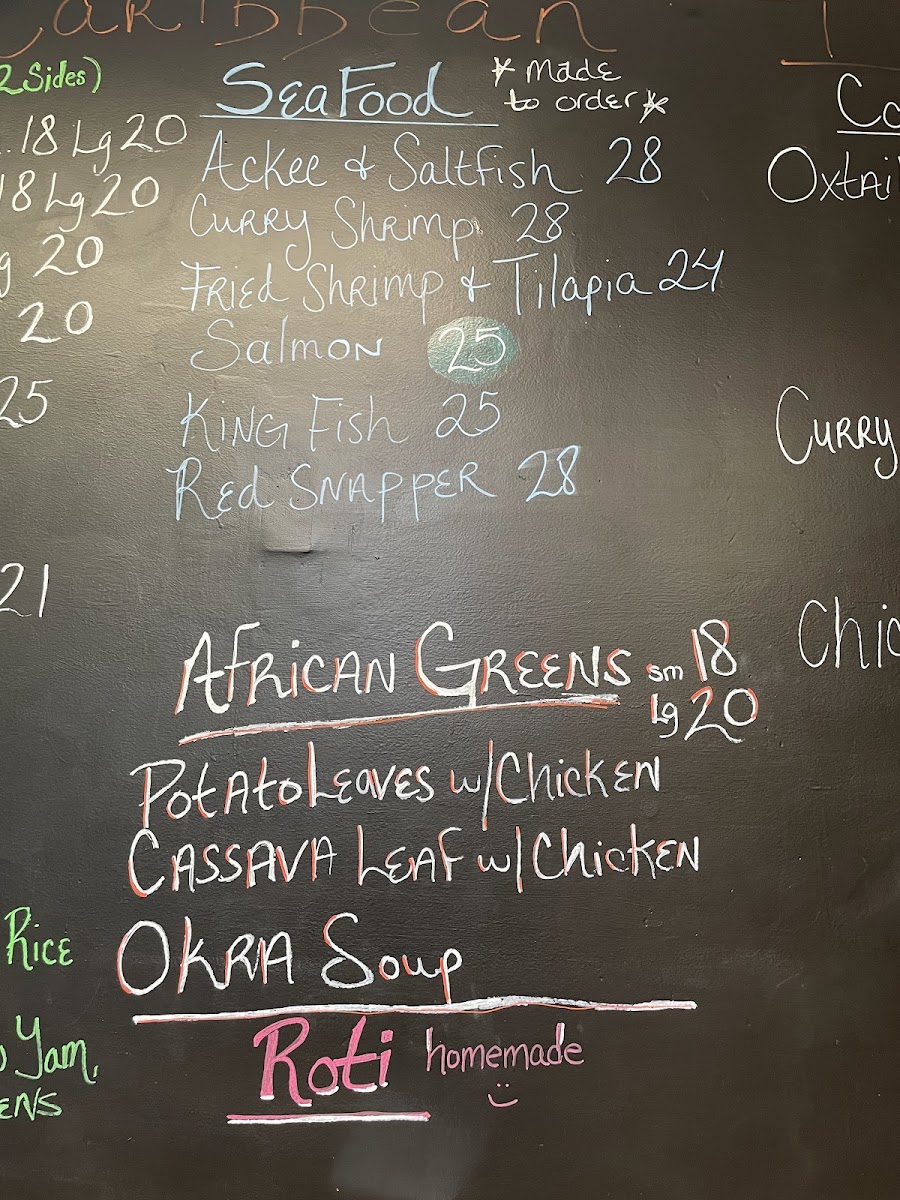 Caribbean
2 Sides)
18 Lg 20
18 Lg 20
20
20
25
21
Rice
Yam,
SeaFood * made to order *
Ackee & Saltfish 28
Curry Shrimp 28
Fried Shrimp & Tilapia 24
Salmon 25
King Fish 25
Red Snapper 28
African Greens sm 18
Lg 20
Potato Leaves w/Chicken
Cassava Leaf w/Chicken
Okra Soup
Roti homemade
Oxtail
Curry